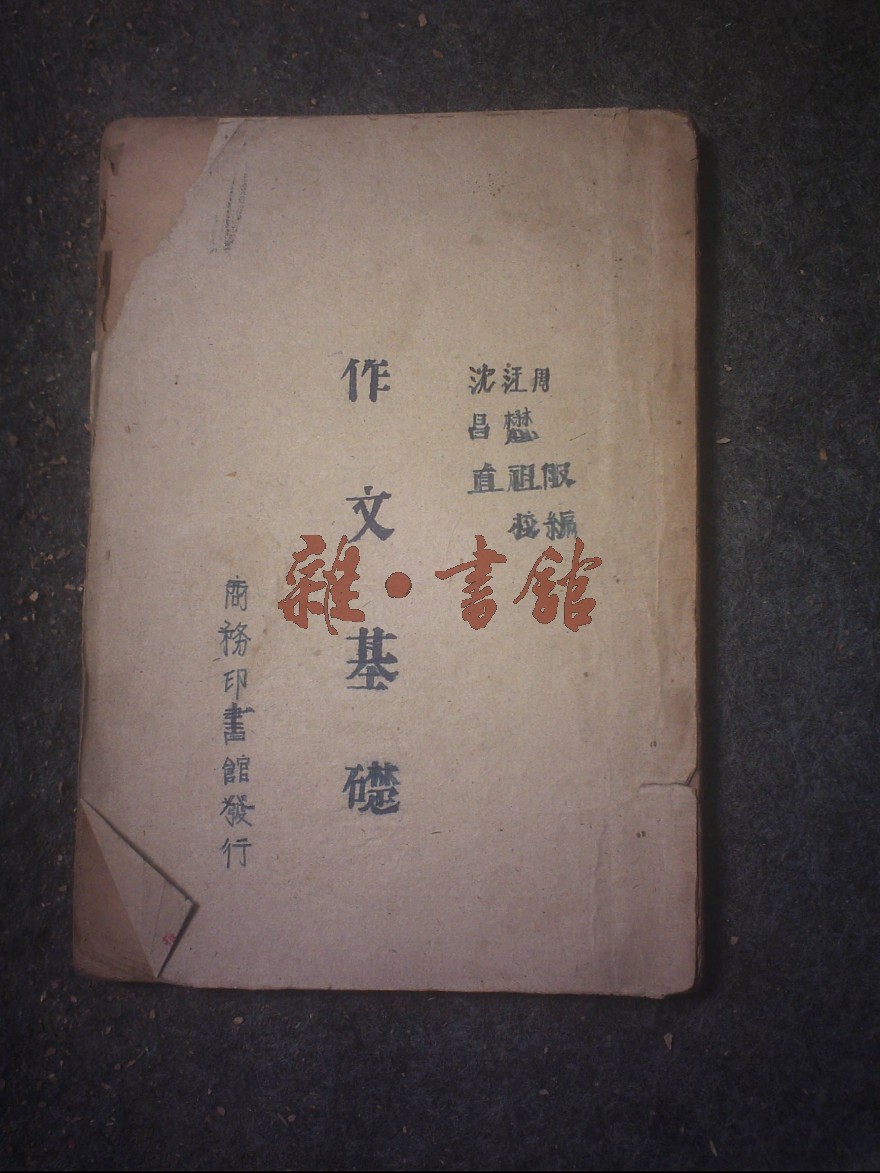 周服編
汪懋祖校
沈昌直
作文基礎
商務印書館發行
雜·書館